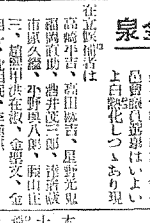 泉
邑會議員選擧はいよい
よ白熱化しつゝあり現
在立候補者は
高崎半吉、高田勝吉、星野光
福岡直助、酒井茂三郎、
市原久繼、小野與八郎、藤山庄
三、趙鏞甲洪在淑、金聖文、金